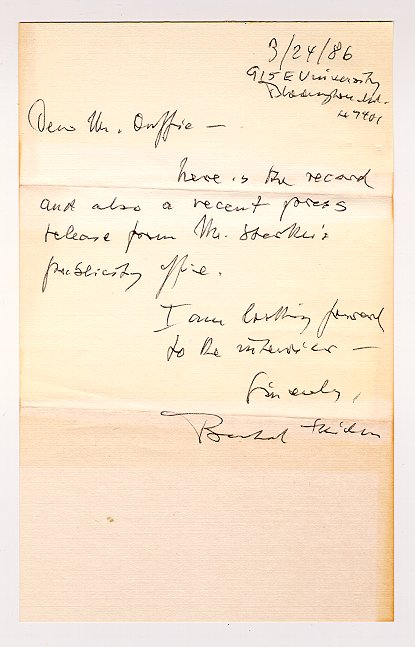 3/24/86
915 E University
Bloomington Ind.
47401
Dear Mr. Duffie —
here is the record
and also a recent press
release from Mr. Starker's
publicity office.
I am looking forward
to the interview —
Sincerely,